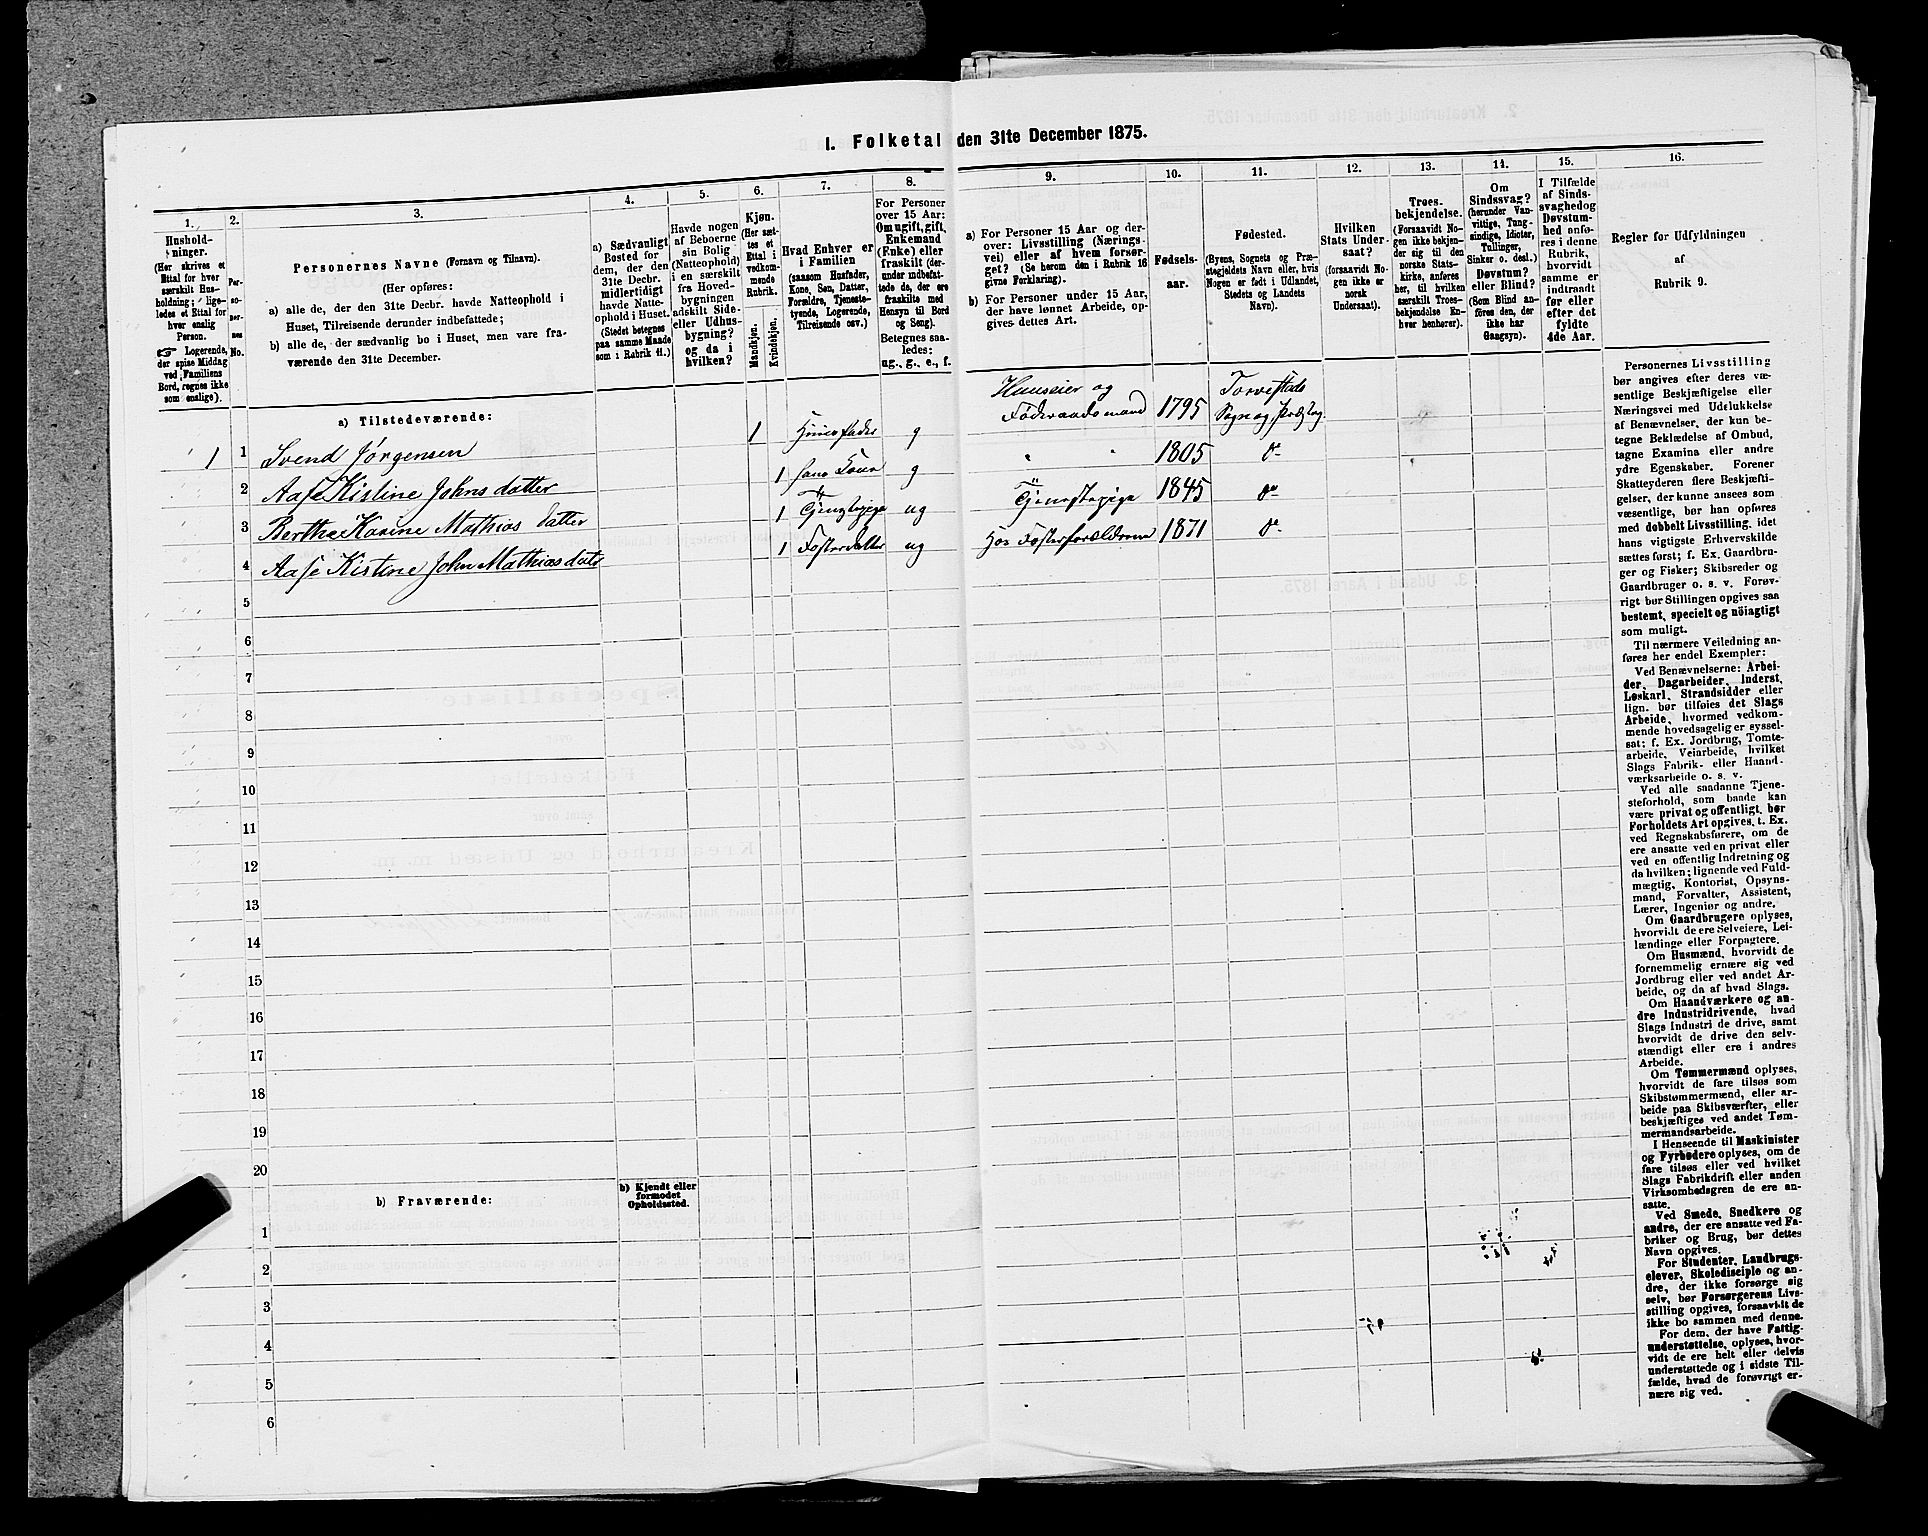 I. Folketal den 31te December 1875.
1.
2.
3.
4.
5.
6.
7.
8.
9.
10.
11.
12.
13.
14.
15.
16.
Hushold-
ninger.
(Her skrives et
Ettal for hver
særskilt Hus-
holdning; lige-
ledes et Ettal for
hver enslig
Person.
☞ Logerende,
der spise Middag
ved Familiens
Bord, regnes ikke
som enslige).
Per-
so-
ner-
nes
No.
Personernes Navne (Fornavn og Tilnavn).
(Her opføres:
a) alle de, der den 31te Decbr. havde Natteophold i
Huset, Tilreisende derunder indbefattede;
b) alle de, der sædvanlig bo i Huset, men vare fra-
værende den 31te December.
a) Sædvanligt
Bosted for
dem, der den
31te Decbr.
midlertidigt
havde Natte-
ophold i Huset.
(Stedet betegnes
paa samme Maade
som i Rubrik 11.)
Havde nogen
af Beboerne
sin Bolig
(Natteophold)
i en særskilt
fra Hoved-
bygningen
adskilt Side-
eller Udhus-
bygning?
og da i
hvilken?
Kjøn.
(Her sæt-
tes et
Ettal i
vedkom-
mende
Rubrik.
Mandkjøn.
Kvindekjøn.
Hvad Enhver er
i Familien
(saasom Husfader,
Kone, Søn, Datter,
Forældre, Tjeneste-
tyende, Logerende,
Tilreisende osv.)
For Personer
over 15 Aar:
Om ugift, gift,
Enkemand
(Enke) eller
fraskilt (der-
under indbefat-
tede de, der ere
fraskilte med
Hensyn til Bord
og Seng).
Betegnes saa-
ledes:
ug., g., e., f.
a) For Personer 15 Aar og der-
over: Livsstilling (Nærings-
vei) eller af hvem forsør-
get? (Se herom den i Rubrik 16
givne Forklaring).
b) For Personer under 15 Aar,
der have lønnet Arbeide, op-
gives dettes Art.
Fødsels-
aar.
Fødested.
(Byens, Sognets og Præ-
stegjeldets Navn eller, hvis
Nogen er født i Udlandet,
Stedets og Landets
Navn).
Hvilken
Stats Under-
saat?
(forsaavidt No-
gen ikke er
norsk
Undersaat).
Troes-
bekjendelse.
(Forsaavidt No-
gen ikke bekjen-
der sig til den
norske Stats-
kirke, anføres
her, til hvilken
særskilt Troes-
bekjendelse En-
hver henhører).
Om
Sindssvag?
(herunder Van-
vittige, Tung-
sindige, Idioter,
Tullinger,
Sinker o. desl.)
Døvstum?
eller Blind?
(Som Blind an-
føres den, der
ikke har
Gangsyn).
I Tilfælde
af Sinds-
svaghed og
Døvstum-
hed anfø-
res i denne
Rubrik,
hvorvidt
samme er
indtraadt
før eller
efter det
fyldte
4de Aar.
Regler for Udfyldningen
af
Rubrik 9.
a) Tilstedeværende:
1 1 Svend Jørgensen 1 Huusfader g Huuseier og Föderaadsmand 1795 Torvestads Sogn og Præstg.
2 Aase Kistine Johnsdatter 1 hans Kone g " " 1805 do
3 Berthe Karine Mathiasdatter 1 Tjenestepige ug Tjenestepige 1845 do
4 Aase Kistine John Mathiasdatr 1 Fosterdatter ug Hos Fosterforældrene 1871 do
5
6
7
8
9
10
11
12
13
14
15
16
17
18
19
20
b) Fraværende:
b) Kjendt eller
formodet
Opholdssted.
1
2
3
4
5
6
Personernes Livsstilling
bør angives efter deres væ-
sentlige Beskjæftigelse eller
Næringsvei med Udelukkelse
af Benævnelser, der kun be-
tegne Beklædelse af Ombud,
tagne Examina eller andre
ydre Egenskaber. Forener
Skatteyderen flere Beskjæfti-
gelser, der kunne ansees som
væsentlige, bør han opføres
med dobbelt Livsstilling, idet
hans vigtigste Erhvervskilde
sættes først; f. Ex. Gaardbru-
ger og Fisker; Skibsreder og
Gaardbruger o. s. v. Forøv-
rigt bør Stillingen opgives saa
bestemt, specielt og nöiagtigt
som muligt.
Til nærmere Veiledning an-
føres her endel Exempler:
Ved Benævnelserne: Arbei-
der, Dagarbeider, Inderst,
Løskarl, Strandsidder eller
lign. bør tilføies det Slags
Arbeide, hvormed vedkom-
mende hovedsagelig er syssel-
sat; f. Ex. Jordbrug, Tomte-
arbeide, Veiarbeide, hvilket
Slags Fabrik- eller Haand-
værksarbeide o. s. v.
Ved alle saadanne Tjene-
steforhold, som baade kan
være privat og offentligt, bør
Forholdets Art opgives, t. Ex.
ved Regnskabsførere, om de
ere ansatte ved en privat eller
ved en offentlig Indretning og
da hvilken; lignende ved Fuld-
mægtig, Kontorist, Opsyns-
mand, Forvalter, Assistent,
Lærer, Ingeniør og andre.
Om Gaardbrugere oplyses,
hvorvidt de ere Selveiere, Lei-
lændinge eller Forpagtere.
Om Husmænd, hvorvidt de
fornemmelig ernære sig ved
Jordbrug eller ved andet Ar-
beide, og da af hvad Slags.
Om Haandværkere og an-
dre Industridrivende, hvad
Slags Industri de drive, samt
hvorvidt de drive den selv-
stændigt eller ere i andres
Arbeide.
Om Tømmermænd oplyses,
hvorvidt de fare tilsøs som
Skibstømmermænd, eller ar-
beide paa Skibsværfter, eller
beskjæftiges ved andet Tøm-
mermandsarbeide.
I Henseende til Maskinister
og Fyrbødere oplyses, om de
fare tilsøs eller ved hvilket
Slags Fabrikdrift eller anden
Virksomhedsgren de ere an-
satte.
Ved Smede, Snedkere og
andre, der ere ansatte ved Fa-
briker og Brug, bør dettes
Navn opgives.
For Studenter, Landbrugs-
elever, Skoledisciple og an-
dre, der ikke forsørge sig
selv, bør Forsørgerens Livs-
stilling opgives, forsaavidt de
ikke bo sammen med denne.
For dem, der have Fattig-
understøttelse, oplyses, hvor-
vidt de ere helt eller delvis
understøttede og i sidste Til-
fælde, hvad de forøvrigt er-
nære sig ved.